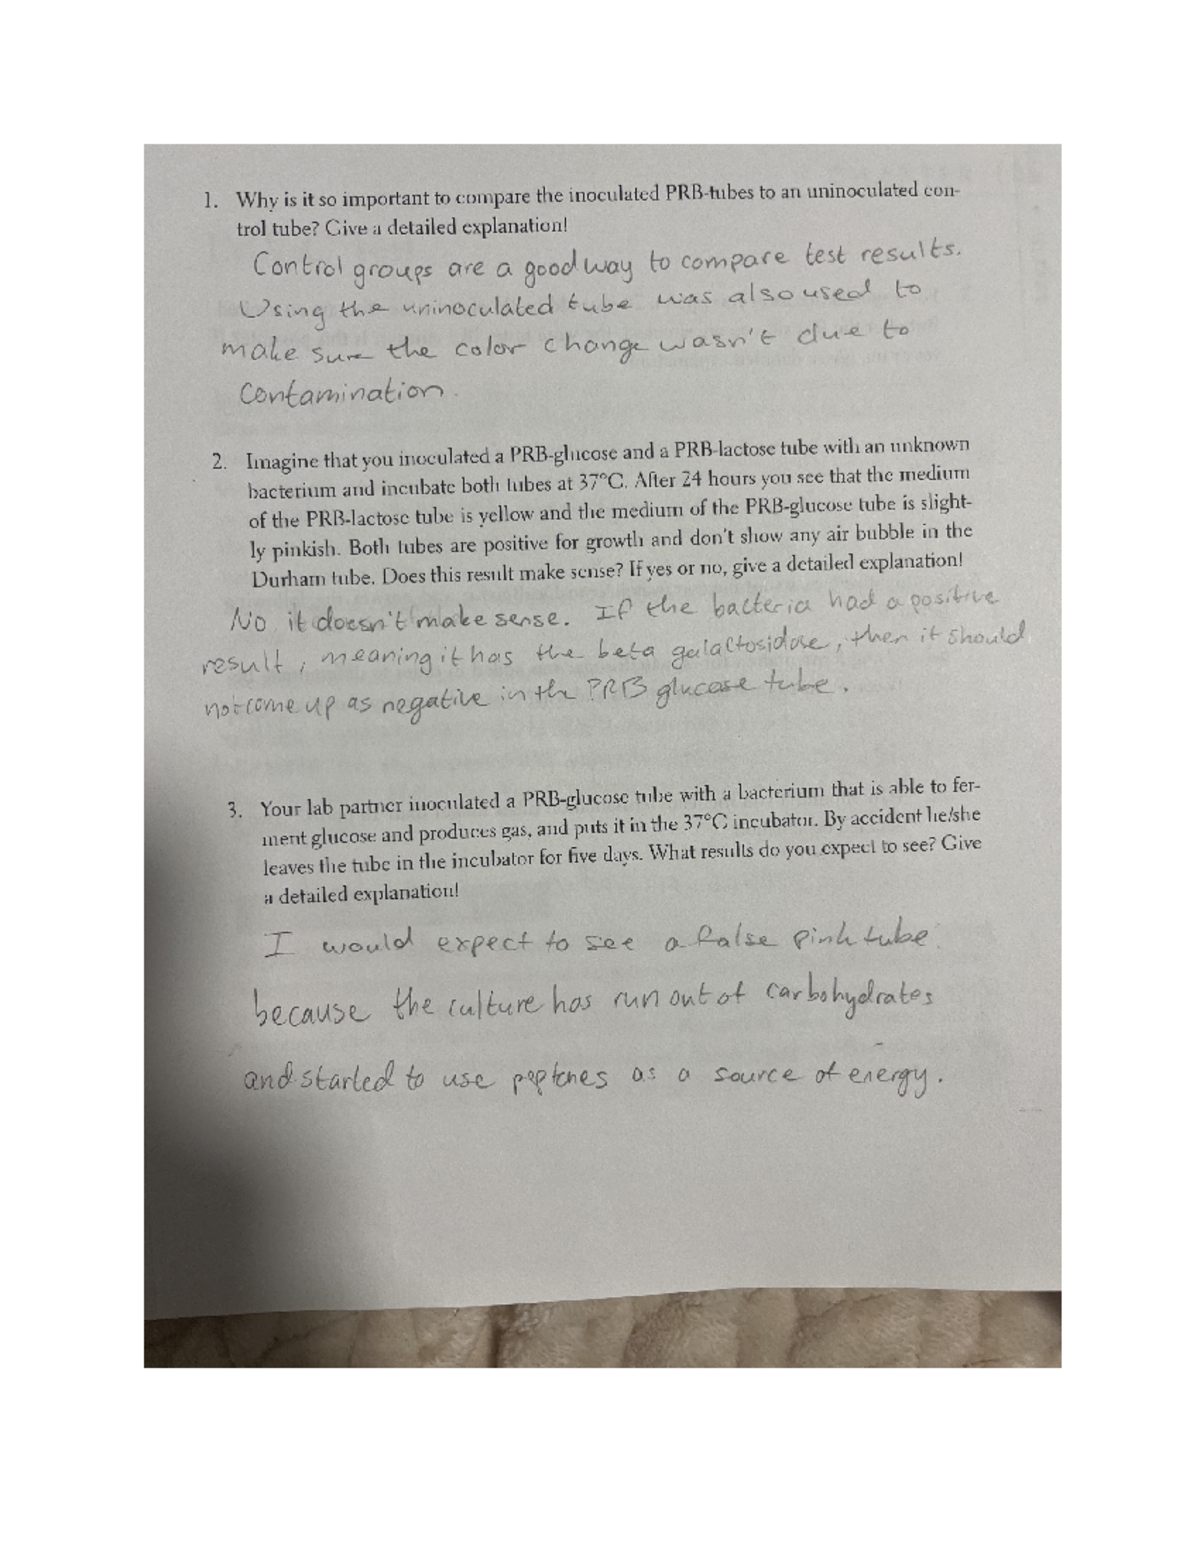 1. Why is it so important to compare the inoculated PRB-tubes to an uninoculated con-
trol tube? Give a detailed explanation!
Control groups are a good way to compare test results.
Using the uninoculated tube was also used to
make sure the color change wasn't due to
contamination.
2. Imagine that you inoculated a PRB-glucose and a PRB-lactose tube with an unknown
bacterium and incubate both tubes at 37°C. After 24 hours you see that the medium
of the PRB-lactose tube is yellow and the medium of the PRB-glucose tube is slight-
ly pinkish. Both tubes are positive for growth and don't show any air bubble in the
Durham tube. Does this result make sense? If yes or no, give a detailed explanation!
No it doesn't make sense. If the bacteria had a positive
result, meaning it has the beta galactosidase, then it should
not come up as negative in the PRB glucose tube.
3. Your lab partner inoculated a PRB-glucose tube with a bacterium that is able to fer-
ment glucose and produces gas, and puts it in the 37°C incubator. By accident he/she
leaves the tube in the incubator for five days. What results do you expect to see? Give
a detailed explanation!
I would expect to see a false pink tube
because the culture has run out of carbohydrates
and started to use peptones as a source of energy.